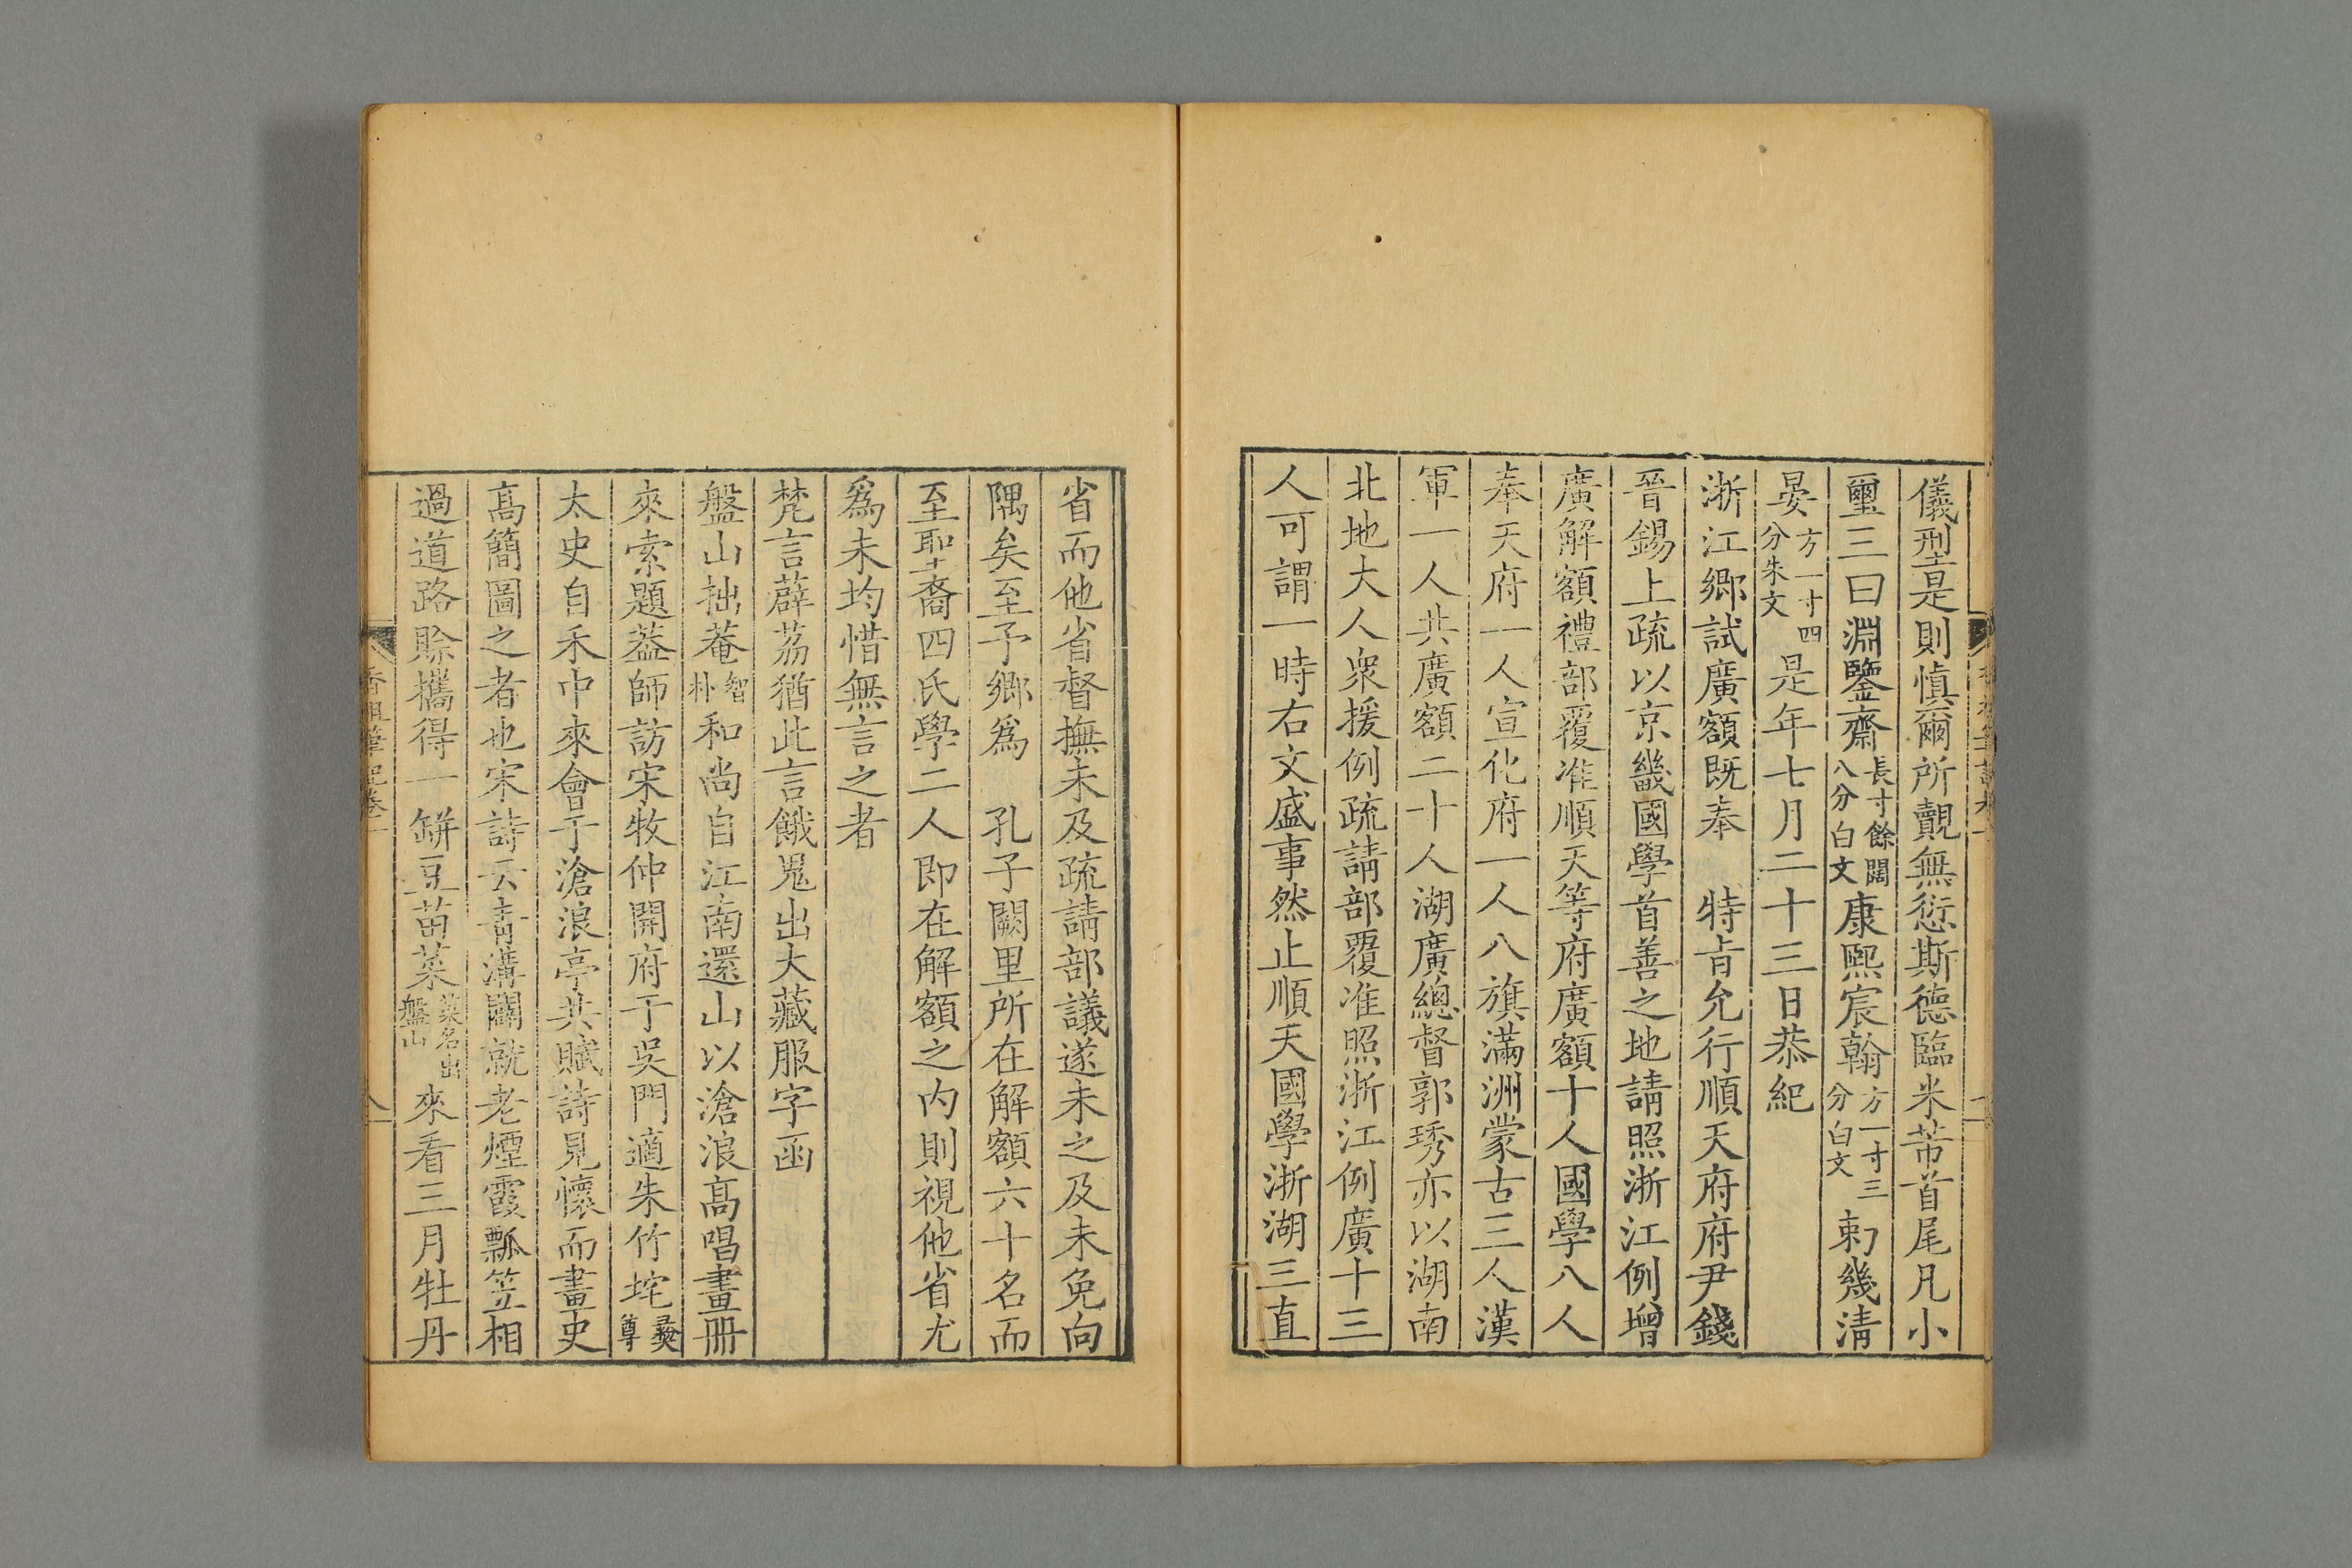 儀型是則慎爾所覿無愆斯德臨米芾首尾凡小
璽三曰淵鑒齋長寸餘闊八分白文康熙宸翰方一寸三分白文𠡠幾清
晏方一寸四分朱文是年七月二十三日恭紀
浙江鄉試廣額既奉　特旨允行順天府府尹錢
晉錫上疏以京畿國學首善之地請照浙江例增
廣解額禮部覆准順天等府廣額十人國學八人
奉天府一人宣化府一人八旗滿洲蒙古三人漢
軍一人共廣額二十人湖廣總督郭琇亦以湖南
北地大人衆援例疏請部覆准照浙江例廣十三
人可謂一時右文盛事然止順天國學浙湖三直
省而他省督撫未及疏請部議遂未之及未免向
隅矣至予鄉爲　孔子闕里所在解額六十名而
至聖裔四氏學二人即在解額之内則視他省尤
爲未均惜無言之者
梵言薜荔猶此言餓鬼出大藏服字函
盤山拙菴智朴和尚自江南還山以滄浪高唱畫冊
來索題葢師訪宋牧仲開府于吳門適朱竹垞彝尊
太史自禾中來會于滄浪亭共賦詩見懷而畫史
高簡圖之者也宋詩云青溝闢就老煙霞瓢笠相
過道路賖攜得一缾豆苗菜菜名出盤山來看三月牡丹
香祖筆記卷一
八